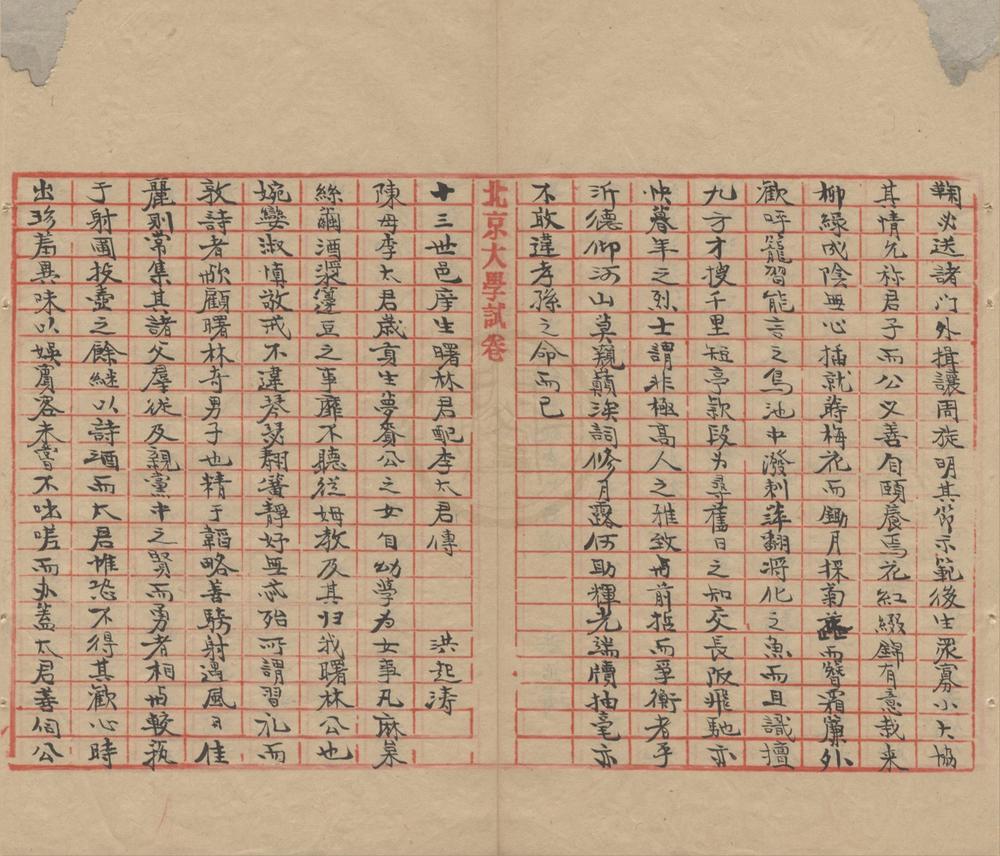 鞠必送諸门外揖讓周旋明其節示範後生衆寡小大協
其情允称君子而公又善自頤養焉花紅綴錦有意栽来
柳綠成陰無心插就蒔梅花而鋤月採菊蕊而簪霜簾外
歡呼籠習能言之鳥池中潑刺萍翻將化之魚而且識擅
九方才搜千里短亭款段为尋舊日之知交長阪飛馳亦
快暮年之烈士謂非極高人之雅致与前哲而爭衡者乎
沂德仰河山莫窺巔涘詞修月露何助輝光端牘抽毫亦
不敢違孝孫之命而已
北京大學試卷
十三世邑庠生曙林君配李太君傳 洪起涛
陳母李太君歲貢生夢賚公之女自幼學为女事凡麻枲
絲繭酒漿籩豆之事靡不聽從姆教及其归我曙林公也
婉孌淑慎敬戒不違琴瑟翻簧靜好無忒殆所謂習礼而
敦詩者欤顧曙林奇男子也精于韜略善騎射遇風日佳
麗则常集其諸父羣從及親黨中之賢而勇者相与較執
于射圃投壺之餘継以詩酒而太君惟恐不得其歡心時
出珍羞異味以娛賓客未嘗不咄嗟而办蓋太君善伺公